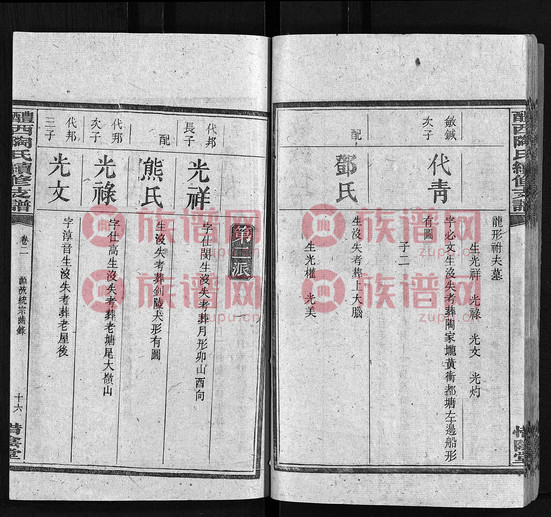 醴西陶氏續修支譜
惜陰堂
龍形祔夫墓
生光祥 光祿 光文 光灼
敏鋮
次子
代青
字必文生沒失考葬陶家壠黃衝都塘左邊船形
有圖
子二
配
鄧氏
生沒失考葬上大腦
生光權 光美
第二派
代邦
長子
光祥
字仕閔生沒失考葬月形卯山酉向
配
熊氏
生沒失考葬劍陵夫形有圖
代邦
次子
光祿
字仕高生沒失考葬老塘尾大嶺山
代邦
三子
光文
字淳音生沒失考葬老屋後
醴西陶氏續修支譜
卷二
十六
惜陰堂
族谱网
zupu.cn
族谱网
zupu.cn
族谱网
zupu.cn
族谱网
zupu.cn